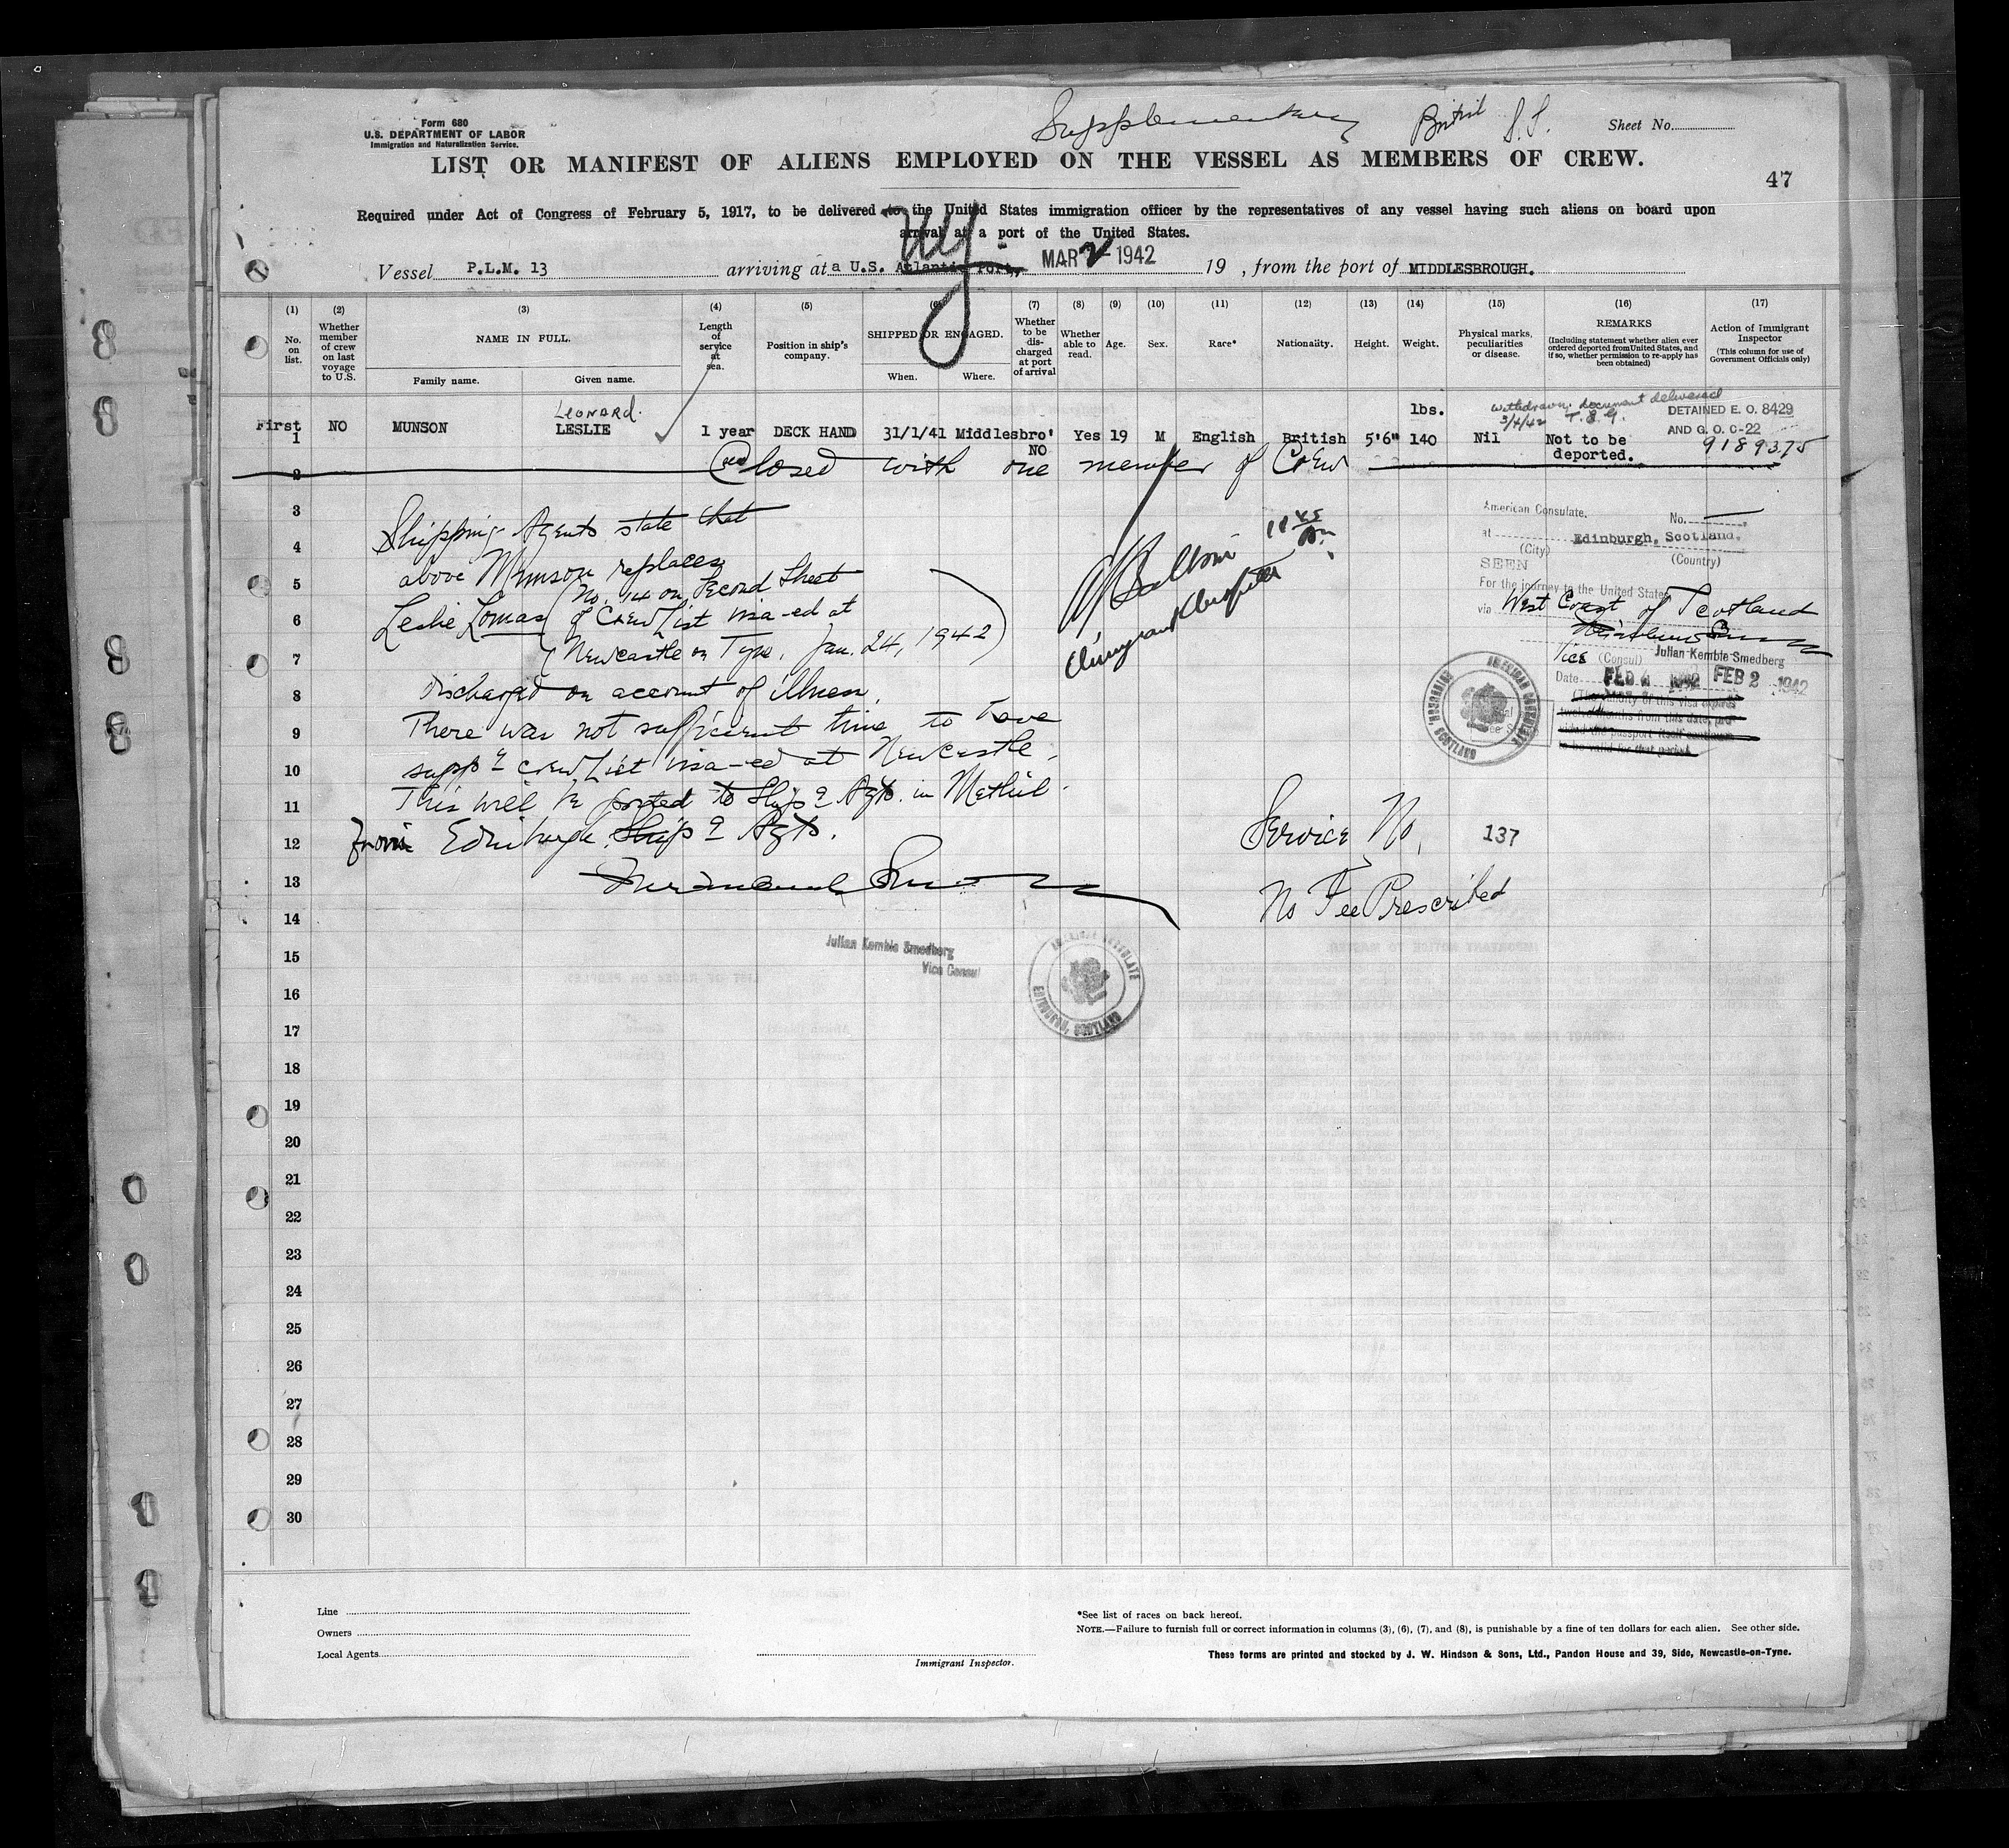 Form 680
U.S. DEPARTMENT OF LABOR
Immigration and Naturalization Service.
Supplementary British S.S. Sheet No.
LIST OR MANIFEST OF ALIENS EMPLOYED ON THE VESSEL AS MEMBERS OF CREW.
47
Required under Act of Congress of February 5, 1917, to be delivered to the United States immigration officer by the representatives of any vessel having such aliens on board upon
arrival at a port of the United States.
NY
Vessel P.L.M. 13 arriving at a U.S. Atlantic Port, MAR 2 1942 19 , from the port of MIDDLESBROUGH.
(1) (2) (3) (4) (5) (6) (7) (8) (9) (10) (11) (12) (13) (14) (15) (16) (17)
No. on list.
Whether member of crew on last voyage to U.S.
NAME IN FULL.
Family name. Given name.
Length of service at sea.
Position in ship's company.
SHIPPED OR ENGAGED.
When. Where.
Whether to be discharged at port of arrival
Whether able to read.
Age.
Sex.
Race*
Nationality.
Height.
Weight.
Physical marks, peculiarities or disease.
REMARKS
(Including statement whether alien ever ordered deported from United States, and if so, whether permission to re-apply has been obtained)
Action of Immigrant Inspector
(This column for use of Government Officials only)
LEONARD. lbs. withdrawn document delivered DETAINED E. O. 8429
3/4/42 AND G. O. C-22
First 1 NO MUNSON LESLIE 1 year DECK HAND 31/1/41 Middlesbro' NO Yes 19 M English British 5'6" 140 Nil Not to be deported. 9189375
2 Closed with one member of Crew
3 Shipping Agents state that
4 above Munson replaces
5 No. 14 on Second Sheet
6 Leslie Lomas of Crew List visa-ed at
7 Newcastle on Tyne, Jan. 24, 1942
8 discharged on account of illness.
9 There was not sufficient time to have
10 supp g crew List visa-ed at Newcastle.
11 This will be posted to Ship g Agts. in Methil.
12 From Edinburgh Ship g Agts.
13
14
15
16
17
18
19
20
21
22
23
24
25
26
27
28
29
30
11 45 Am
Immigrant Inspector
American Consulate. No.
at Edinburgh, Scotland.
(City) (Country)
SEEN
For the journey to the United States
via West Coast of Scotland
Vice (Consul) Julian Kemble Smedberg
Date FEB 2 1942 FEB 2 1942
AMERICAN CONSULATE
EDINBURGH, SCOTLAND
Service No. 137
No Fee Prescribed
Julian Kemble Smedberg
Vice Consul
AMERICAN CONSULATE
EDINBURGH, SCOTLAND
Line
Owners
Local Agents
Immigrant Inspector.
*See list of races on back hereof.
NOTE.—Failure to furnish full or correct information in columns (3), (6), (7), and (8), is punishable by a fine of ten dollars for each alien. See other side.
These forms are printed and stocked by J. W. Hindson & Sons, Ltd., Pandon House and 39, Side, Newcastle-on-Tyne.